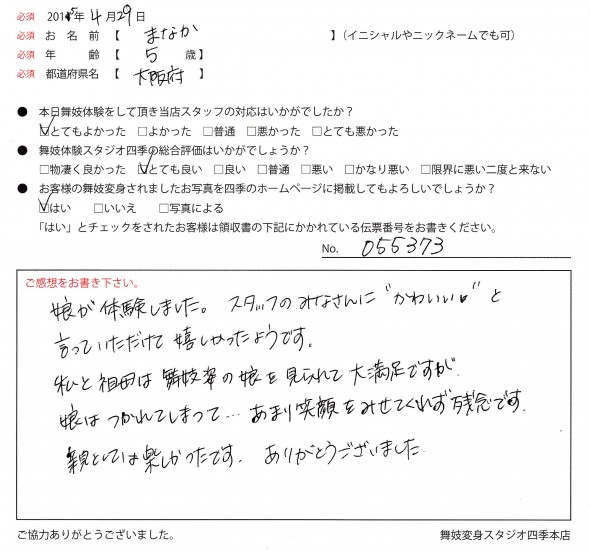 必須 2015年 4月29日
必須 お名前【 まなか 】(イニシャルやニックネームでも可)
必須 年齢【 5 歳】
必須 都道府県名【 大阪府 】
● 本日舞妓体験をして頂き当店スタッフの対応はいかがでしたか?
☑とてもよかった □よかった □普通 □悪かった □とても悪かった
● 舞妓体験スタジオ四季の総合評価はいかがでしょうか?
□物凄く良かった ☑とても良い □良い □普通 □悪い □かなり悪い □限界に悪い二度と来ない
● お客様の舞妓変身されましたお写真を四季のホームページに掲載してもよろしいでしょうか?
☑はい □いいえ □写真による
「はい」とチェックをされたお客様は領収書の下記にかかれている伝票番号をお書きください。
No. 055373
ご感想をお書き下さい。
娘が体験しました。スタッフのみなさんに"かわいい♥"と
言っていただけて嬉しかったようです。
私と祖母は舞妓姿の娘を見られて大満足ですが
娘はつかれてしまって…あまり笑顔をみせてくれず残念です.
親としては楽しかったです. ありがとうございました
ご協力ありがとうございました。
舞妓変身スタジオ四季本店